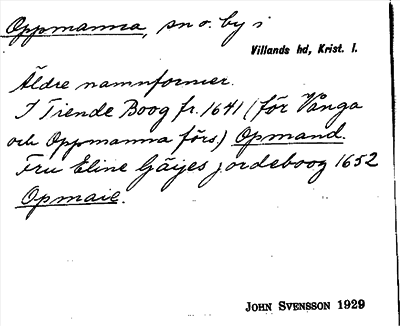 Oppmanna, sn o. by i
Villands hd, Krist. l.
Äldre namnformer.
I Tiende Boog fr. 1641 (för Vånga
och Oppmanna förs.) Opmand.
Fru Eline Gäijes jordeboog 1652
Opmaie.
JOHN SVENSSON 1929